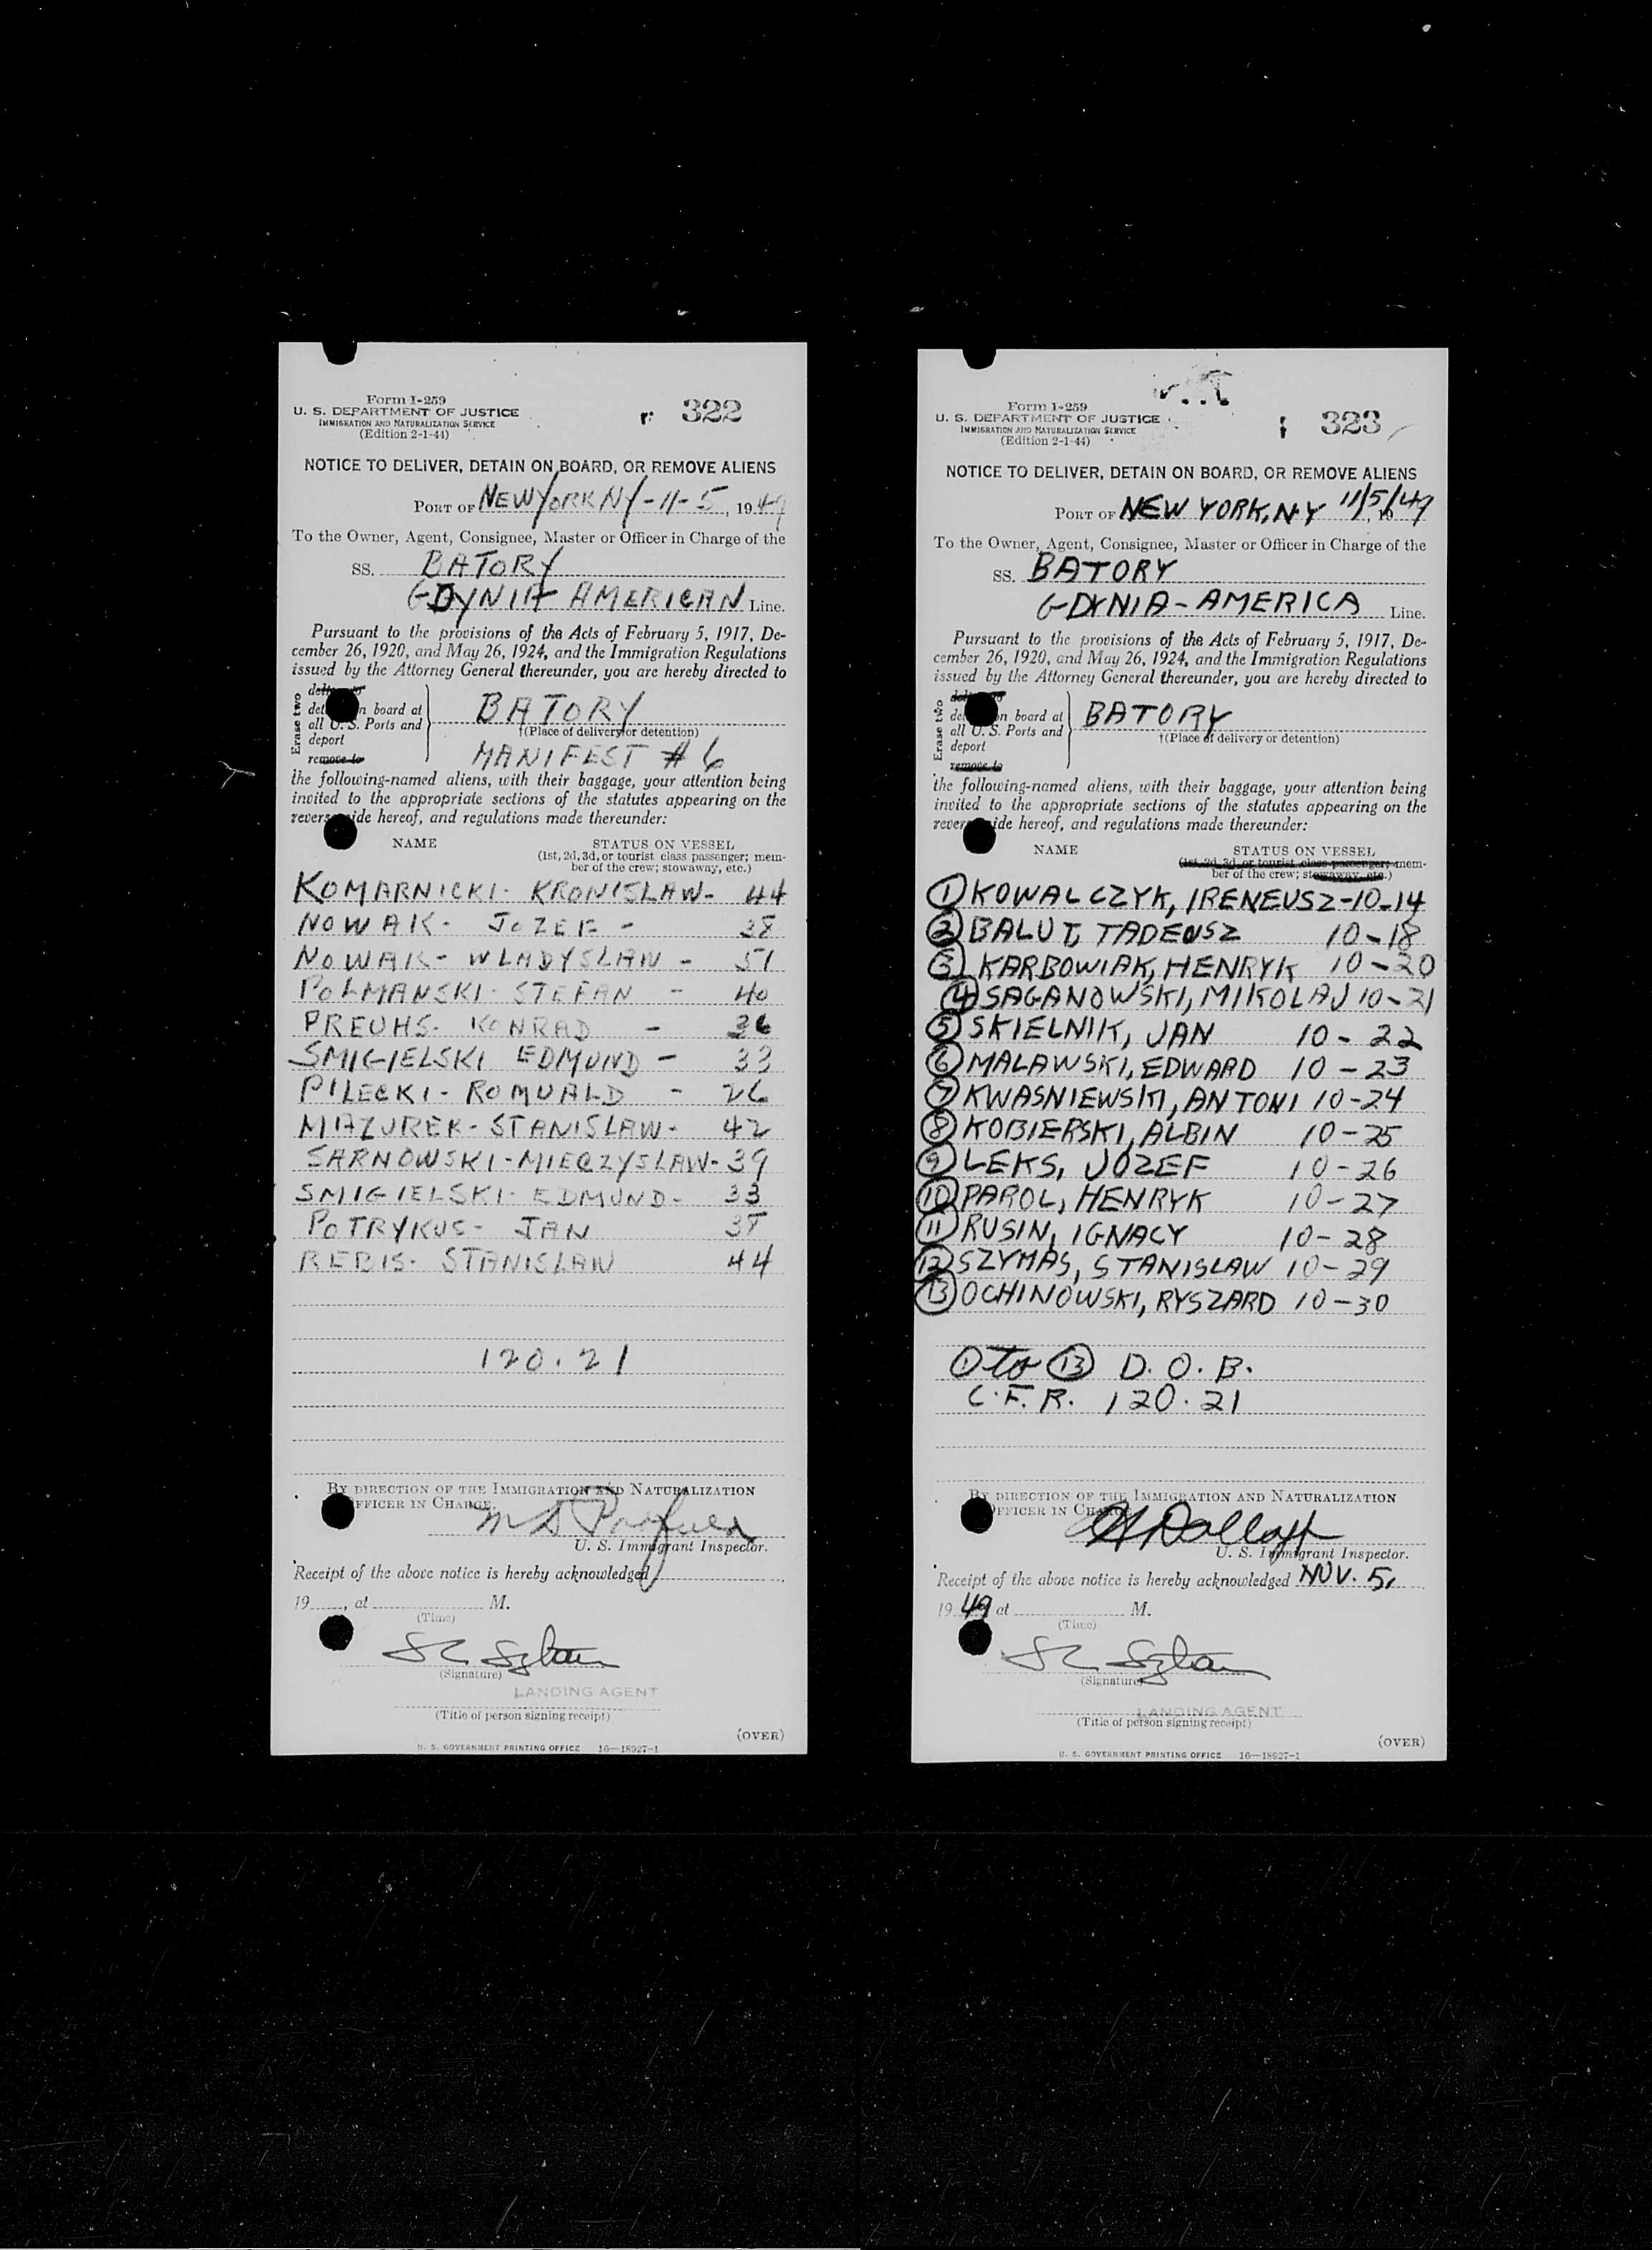 Form I-259
U. S. DEPARTMENT OF JUSTICE
IMMIGRATION AND NATURALIZATION SERVICE
(Edition 2-1-44)
322
NOTICE TO DELIVER, DETAIN ON BOARD, OR REMOVE ALIENS
PORT OF NEW YORK NY - 11 - 5, 1949
To the Owner, Agent, Consignee, Master or Officer in Charge of the
SS. BATORY
GDYNIA AMERICAN Line.
Pursuant to the provisions of the Acts of February 5, 1917, De-
cember 26, 1920, and May 26, 1924, and the Immigration Regulations
issued by the Attorney General thereunder, you are hereby directed to
Erase two
deliver to
det n board at
all U. S. Ports and
deport
remove to
BATORY
†(Place of delivery or detention)
MANIFEST # 6
the following-named aliens, with their baggage, your attention being
invited to the appropriate sections of the statutes appearing on the
revers ide hereof, and regulations made thereunder:
NAME
STATUS ON VESSEL
(1st, 2d, 3d, or tourist class passenger; mem-
ber of the crew; stowaway, etc.)
KOMARNICKI - KRONISLAW - 44
NOWAK - JOZEF - 38
NOWAK - WLADYSLAW - 51
POLMANSKI - STEFAN - 40
PREUHS - KONRAD - 36
SMIGIELSKI EDMUND - 33
PILECKI - ROMUALD - 26
MAZUREK - STANISLAW - 42
SARNOWSKI - MIECZYSLAW - 39
SMIGIELSKI - EDMUND - 33
POTRYKUS - JAN
REBIS - STANISLAW 44
120.21
BY DIRECTION OF THE IMMIGRATION AND NATURALIZATION
FFICER IN CHARGE.
U. S. Immigrant Inspector.
Receipt of the above notice is hereby acknowledged
19 , at M.
(Time)
(Signature)
LANDING AGENT
(Title of person signing receipt)
(OVER)
U. S. GOVERNMENT PRINTING OFFICE 16—18927-1
Form I-259
U. S. DEPARTMENT OF JUSTICE
IMMIGRATION AND NATURALIZATION SERVICE
(Edition 2-1-44)
323
NOTICE TO DELIVER, DETAIN ON BOARD, OR REMOVE ALIENS
PORT OF NEW YORK, N.Y 11/5/49, 19
To the Owner, Agent, Consignee, Master or Officer in Charge of the
SS. BATORY
GDYNIA - AMERICA Line.
Pursuant to the provisions of the Acts of February 5, 1917, De-
cember 26, 1920, and May 26, 1924, and the Immigration Regulations
issued by the Attorney General thereunder, you are hereby directed to
Erase two
deliver to
de on board at
all U. S. Ports and
deport
remove to
BATORY
†(Place of delivery or detention)
the following-named aliens, with their baggage, your attention being
invited to the appropriate sections of the statutes appearing on the
rever ide hereof, and regulations made thereunder:
NAME
STATUS ON VESSEL
(1st, 2d, 3d, or tourist class passenger; mem-
ber of the crew; stowaway, etc.)
1 KOWALCZYK, IRENEUSZ - 10-14
2 BALUT, TADEUSZ 10-18
3 KARBOWIAK, HENRYK 10-20
4 SAGANOWSKI, MIKOLAJ 10-21
5 SKIELNIK, JAN 10-22
6 MALAWSKI, EDWARD 10-23
7 KWASNIEWSKI, ANTONI 10-24
8 KOBIERSKI, ALBIN 10-25
9 LEKS, JOZEF 10-26
10 PAROL, HENRYK 10-27
11 RUSIN, IGNACY 10-28
12 SZYMAS, STANISLAW 10-29
13 OCHINOWSKI, RYSZARD 10-30
1 to 13 D. O. B.
C.F.R. 120.21
BY DIRECTION OF THE IMMIGRATION AND NATURALIZATION
FFICER IN CHARGE.
U. S. Immigrant Inspector.
Receipt of the above notice is hereby acknowledged NOV. 5,
19 49 at M.
(Time)
(Signature)
LANDING AGENT
(Title of person signing receipt)
(OVER)
U. S. GOVERNMENT PRINTING OFFICE 16—18927-1